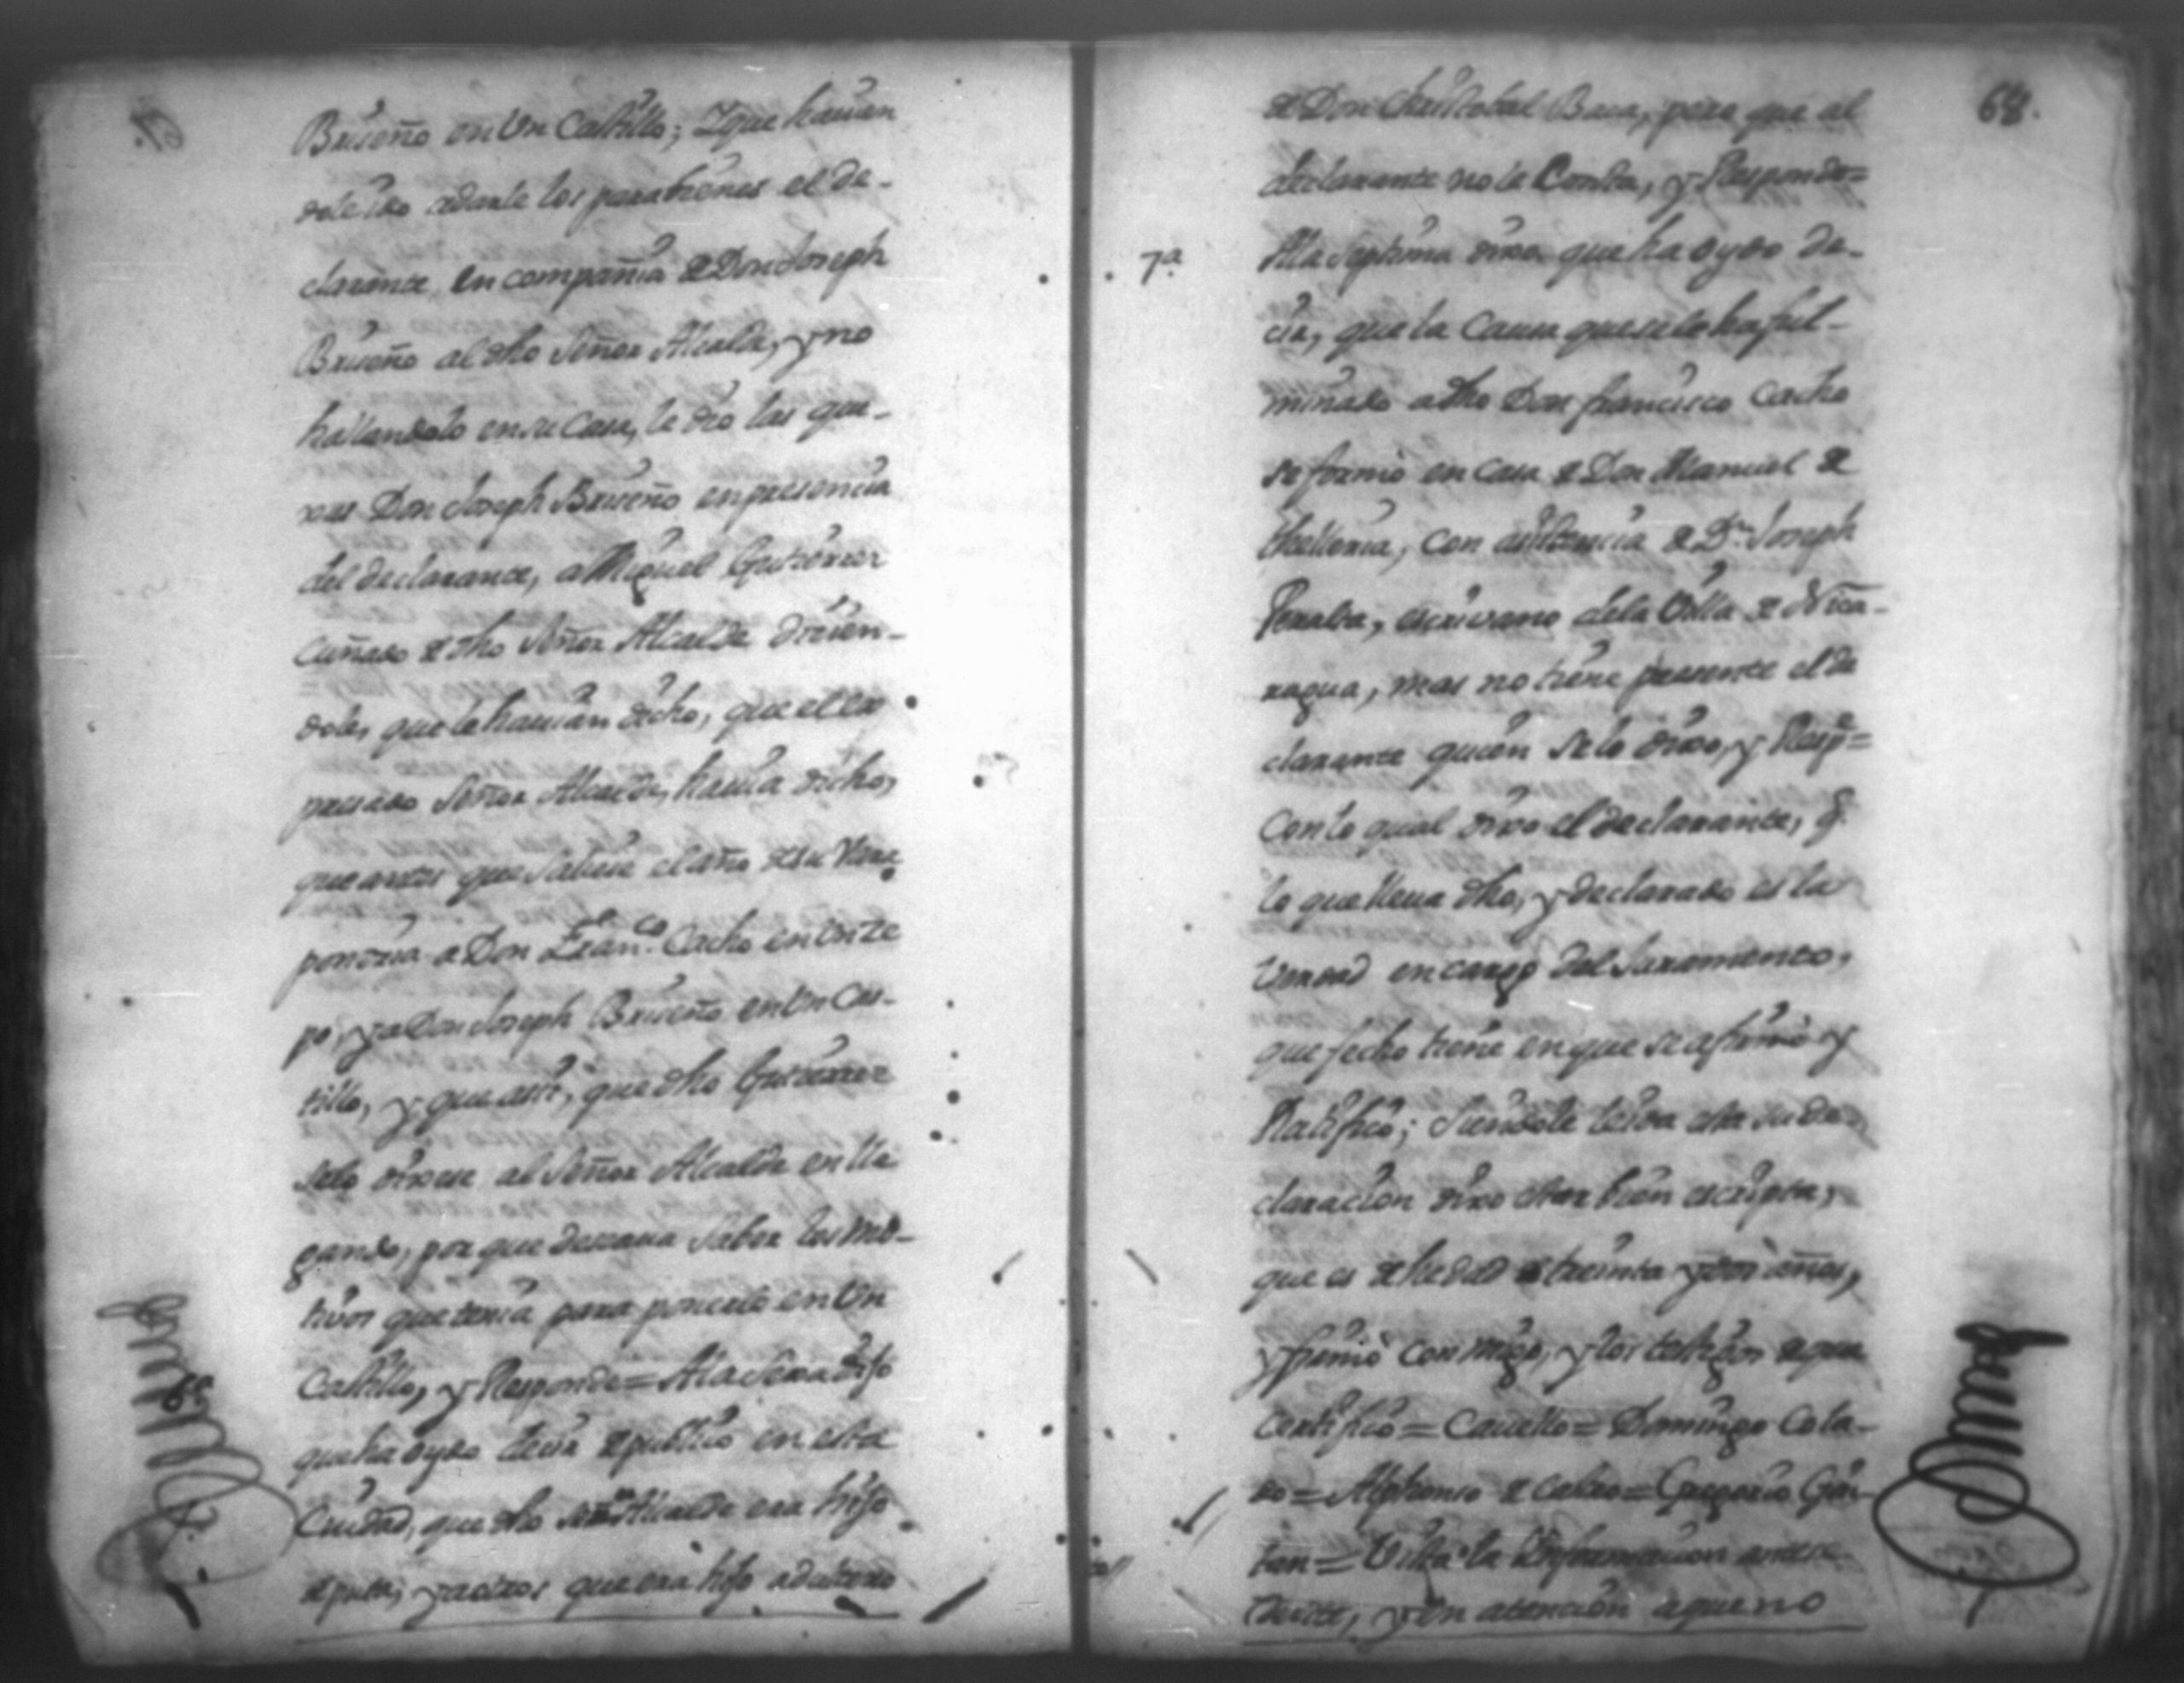 Briseño en Un Castillo; Y que havien
dole ido adarle los parabienes el de-
clarante en compañia de Don Joseph
Briseño al dho Señor Alcalde, y no
hallandolo en su Casa, le dio las que-
xas Don Joseph Briseño en presencia
del declarante, a Miguel Gutierrez
cuñado de dho Señor Alcalde dicien-
dole, que le havian dicho, que el ex
presado Señor Alcalde, havia dicho,
que antes que saliese el año de su Vara
pondria a Don Fran.co Cacho en Un ze
po, y a Don Joseph Briseño en Un Cas-
tillo, y que assi, que dho Gutierrez
selo dixese al Señor Alcalde en lle
gando, por que deseava saber los mo-
tivos que tenia para ponerlo en Un
Castillo, y Responde= A la Sexta dijo
que ha oydo decir de publico en esta
Ciudad, que dho Señor Alcalde era hijo
de puta, y a otros que era hijo adulterino
68.
de Don Christobal Baca, pero que al
declarante no le Consta, y Responde=
7a
Ala septima dixo que ha oydo de-
cir, que la Causa que se le ha ful-
minado a dho Don francisco Cacho
se formò en casa de Don Manuel de
con asistencia de Dn Joseph
Peralta, escrivano dela Villa de Nica-
ragua, mas no tiene presente el de
clarante quien se lo dixo, y Resp.e=
Con lo qual dixo el declarante, q.
lo que lleva dho, y declarado es la
Verdad en cargo del Juramento,
que fecho tiene en que se afirmò y
Ratificò; siendole leida esta su de
claracion dixo estar bien escripta,
que es de hedad de treinta y dos años,
y firmò con migo, y los testigos de que
Certifico= Cavello= Domingo Cola-
do= Alphonso de Castro= Gregorio Gai-
tan= Vista la Informacion antece
dente, y en atencion a que no